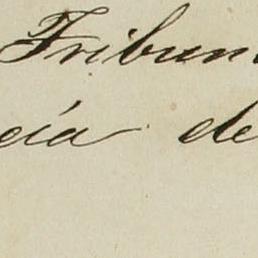 Tribun
cía de